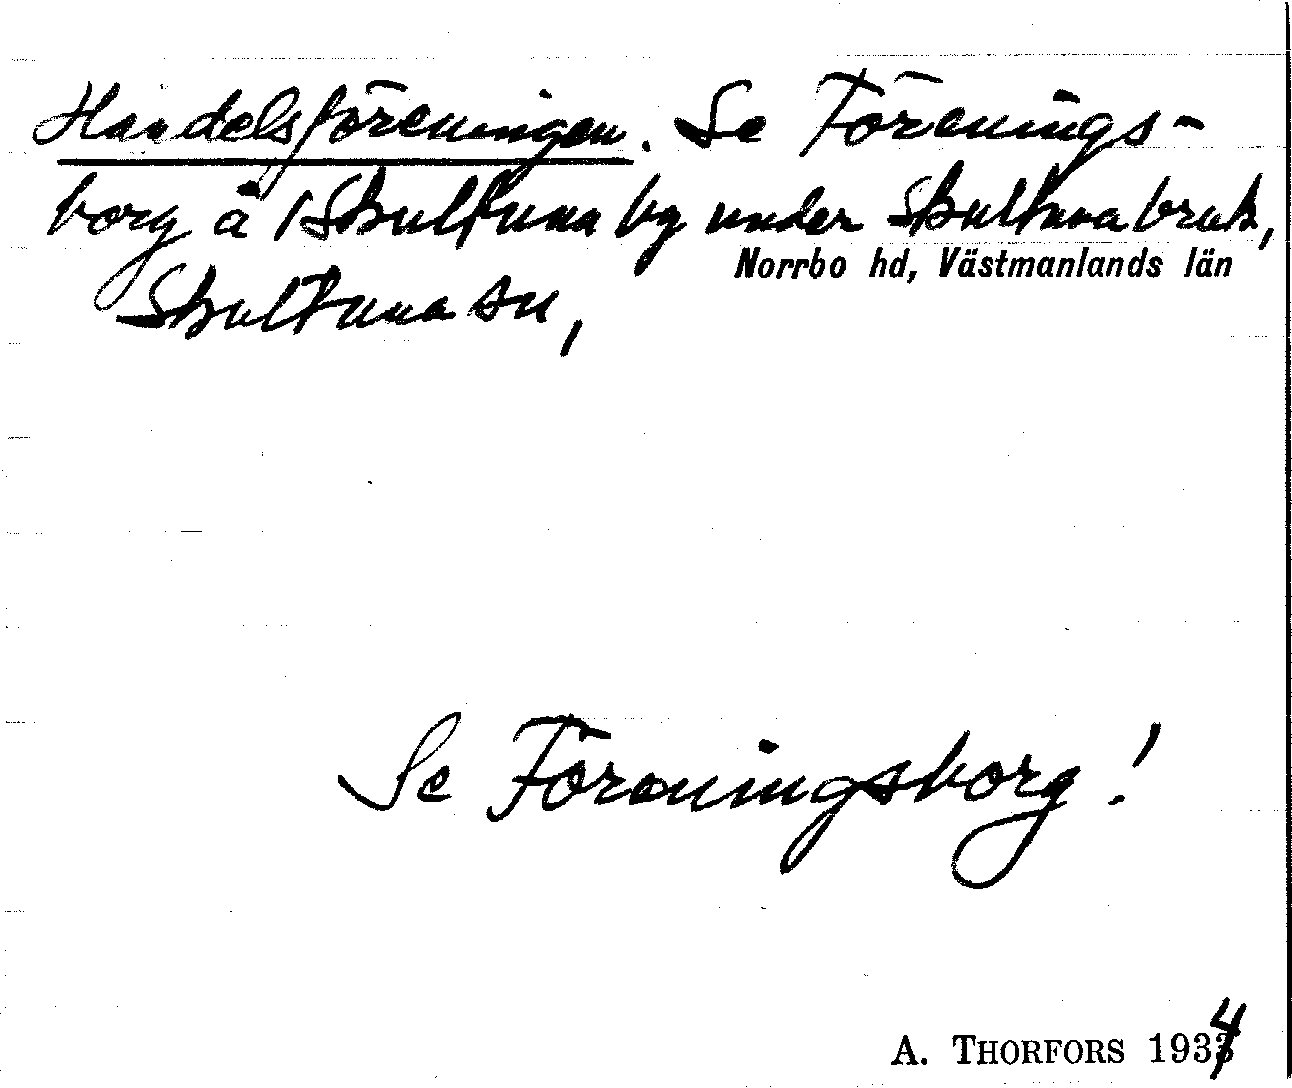 Handelsföreningen. Se Förenings-
borg å 1 Skultuna by under Skultuna bruk,
Norrbo hd, Västmanlands län
Skultuna sn,
Se Föreningsborg!
A. THORFORS 1934